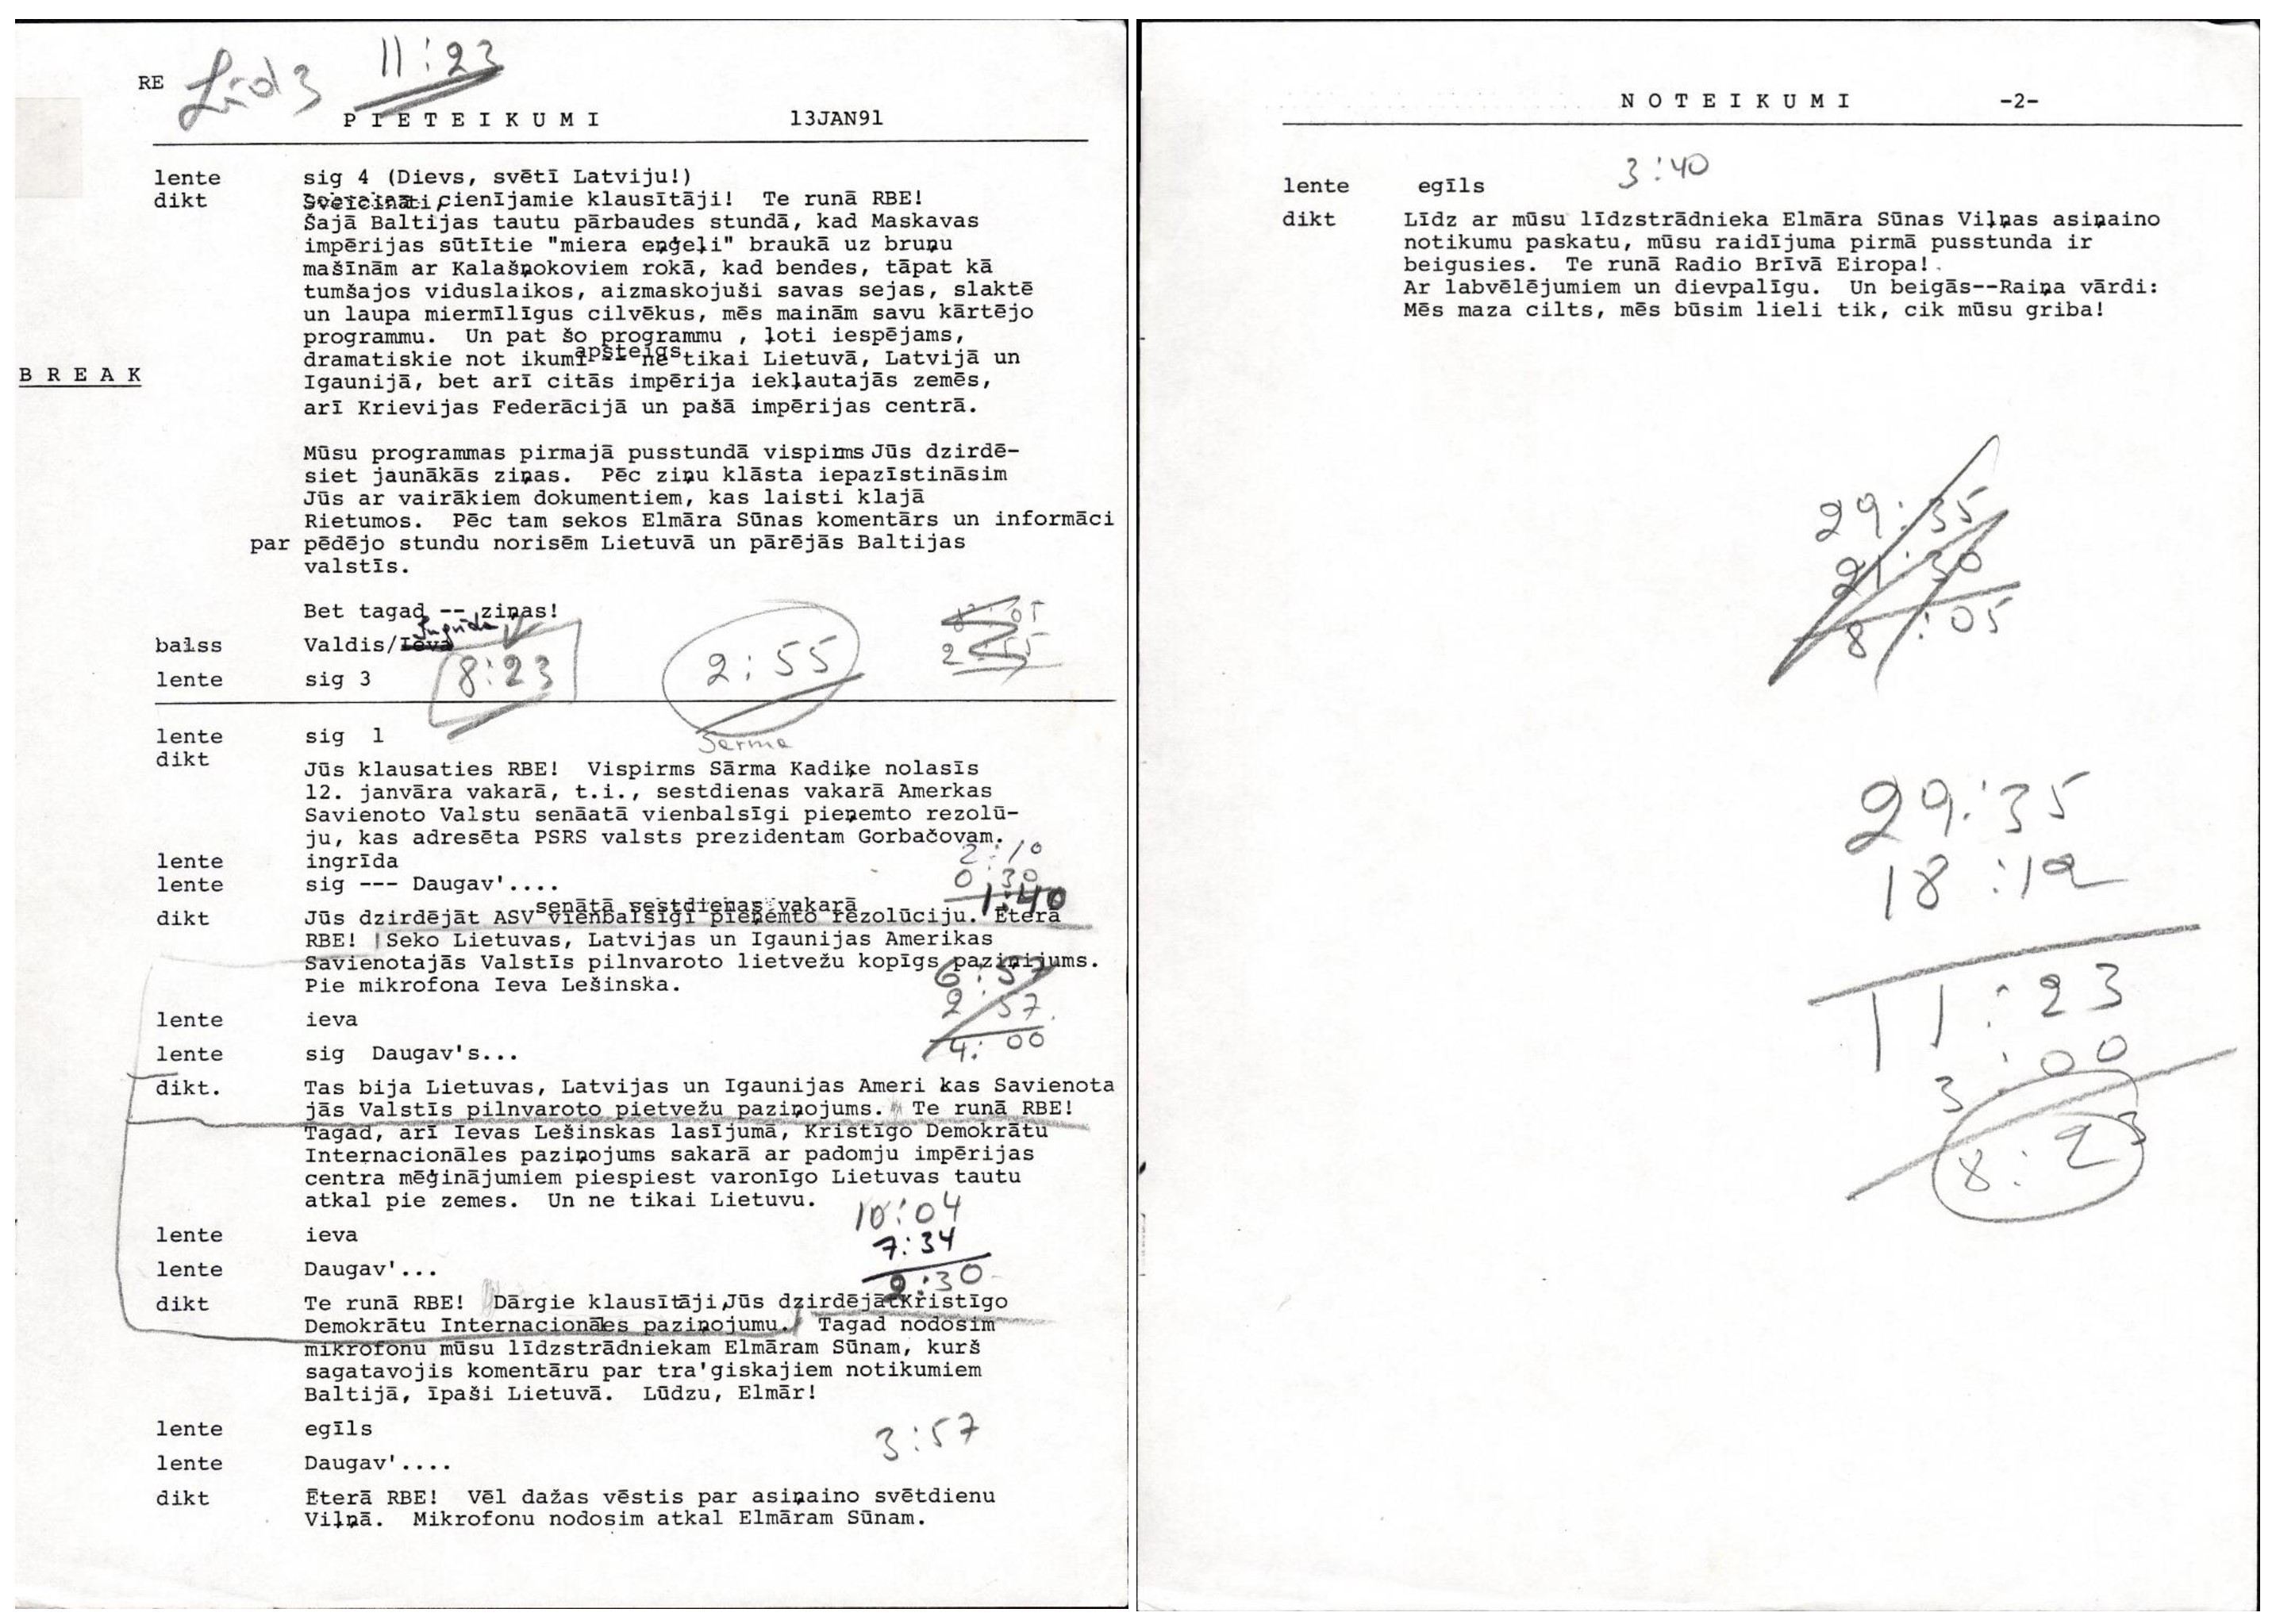 RE Līdz 11:23
PIETEIKUMI 13JAN91
lente sig 4 (Dievs, svētī Latviju!)
dikt Sveicināti, cienījamie klausītāji! Te runā RBE!
Šajā Baltijas tautu pārbaudes stundā, kad Maskavas
impērijas sūtītie "miera eņģeļi" braukā uz bruņu
mašīnām ar Kalašņokoviem rokā, kad bendes, tāpat kā
tumšajos viduslaikos, aizmaskojuši savas sejas, slaktē
un laupa miermīlīgus cilvēkus, mēs mainām savu kārtējo
programmu. Un pat šo programmu , ļoti iespējams,
apsteigs
dramatiskie not ikumi -- ne tikai Lietuvā, Latvijā un
BREAK
Igaunijā, bet arī citās impērija iekļautajās zemēs,
arī Krievijas Federācijā un pašā impērijas centrā.
Mūsu programmas pirmajā pusstundā vispirms Jūs dzirdē-
siet jaunākās ziņas. Pēc ziņu klāsta iepazīstināsim
Jūs ar vairākiem dokumentiem, kas laisti klajā
Rietumos. Pēc tam sekos Elmāra Sūnas komentārs un informāci
par pēdējo stundu norisēm Lietuvā un pārējās Baltijas
valstīs.
Bet tagad -- ziņas!
Ingrīda
balss Valdis/Ieva
8:05
2:55
lente sig 3 8:23 2:55
Sarma
lente sig 1
dikt
Jūs klausaties RBE! Vispirms Sārma Kadiķe nolasīs
12. janvāra vakarā, t.i., sestdienas vakarā Amerkas
Savienoto Valstu senāatā vienbalsīgi pieņemto rezolū-
ju, kas adresēta PSRS valsts prezidentam Gorbačovam.
lente ingrīda 2:10
lente sig --- Daugav'.... 0:30
1:40
senātā sestdienas vakarā
dikt Jūs dzirdējāt ASV vienbalsīgi pieņemto rezolūciju. Ēterā
RBE! Seko Lietuvas, Latvijas un Igaunijas Amerikas
Savienotajās Valstīs pilnvaroto lietvežu kopīgs paziņijums.
Pie mikrofona Ieva Lešinska. 6:57
lente ieva 2:57
lente sig Daugav's... 4:00
dikt. Tas bija Lietuvas, Latvijas un Igaunijas Ameri kas Savienota
jās Valstīs pilnvaroto pietvežu paziņojums. Te runā RBE!
Tagad, arī Ievas Lešinskas lasījumā, Kristīgo Demokrātu
Internacionāles paziņojums sakarā ar padomju impērijas
centra mēģinājumiem piespiest varonīgo Lietuvas tautu
atkal pie zemes. Un ne tikai Lietuvu.
10:04
lente ieva 7:34
lente Daugav'... 2:30
dikt Te runā RBE! Dārgie klausītāji,Jūs dzirdējātKristīgo
Demokrātu Internacionāles paziņojumu. Tagad nodosim
mikrofonu mūsu līdzstrādniekam Elmāram Sūnam, kurš
sagatavojis komentāru par tra'giskajiem notikumiem
Baltijā, īpaši Lietuvā. Lūdzu, Elmār!
lente egīls 3:57
lente Daugav'....
dikt Ēterā RBE! Vēl dažas vēstis par asiņaino svētdienu
Viļņā. Mikrofonu nodosim atkal Elmāram Sūnam.
NOTEIKUMI -2-
lente egīls 3:40
dikt Līdz ar mūsu līdzstrādnieka Elmāra Sūnas Viļņas asiņaino
notikumu paskatu, mūsu raidījuma pirmā pusstunda ir
beigusies. Te runā Radio Brīvā Eiropa!
Ar labvēlējumiem un dievpalīgu. Un beigās--Raiņa vārdi:
Mēs maza cilts, mēs būsim lieli tik, cik mūsu griba!
29:35
21:30
8:05
29:35
18:12
11:23
3:00
8:23